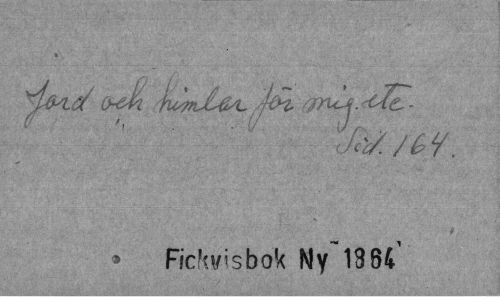 Jord och himlar för mig. etc.
Sid. 164.
Fickvisbok Ny 1864